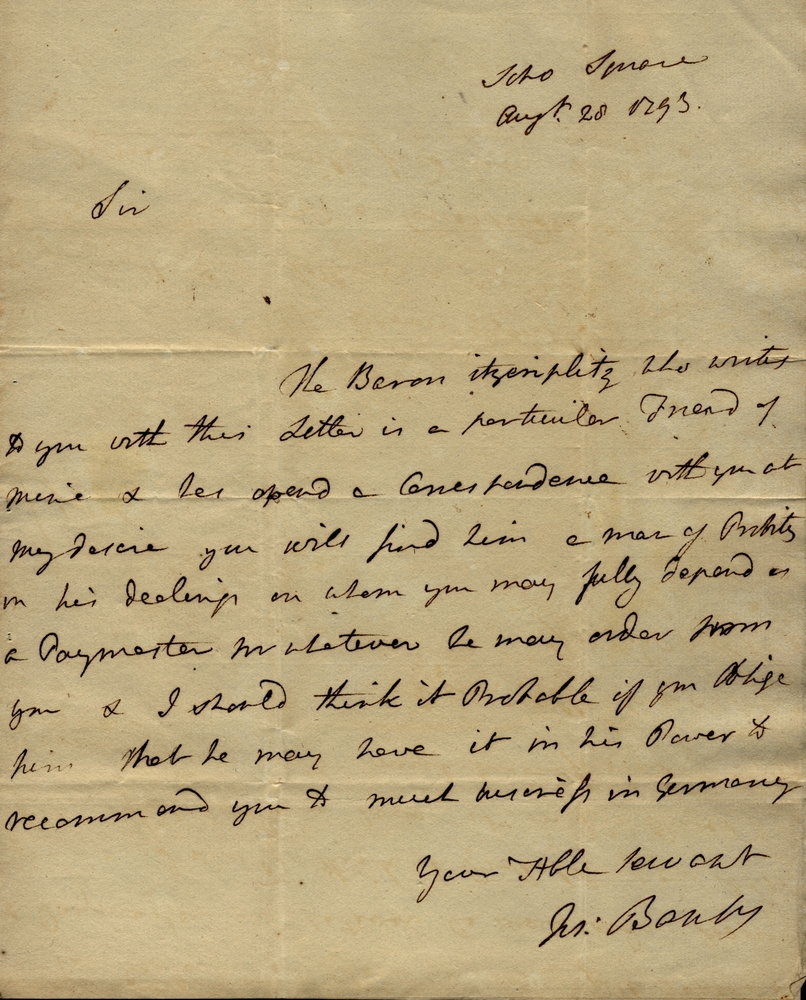 Soho Square
Augst. 28 1793.
Sir
The Baron itzenplitz who writes
to you with this Letter is a particular Friend of
mine & has opend a Correspondence with you at
my desire you will find him a man of Probity
in his dealings on whom you may fully depend as
a Paymaster for whatever he may order from
you & I should think it Probable if you Oblige
him that he may have it in his Power to
recommend you to much business in Germany
Your Hble servant
Jos: Banks